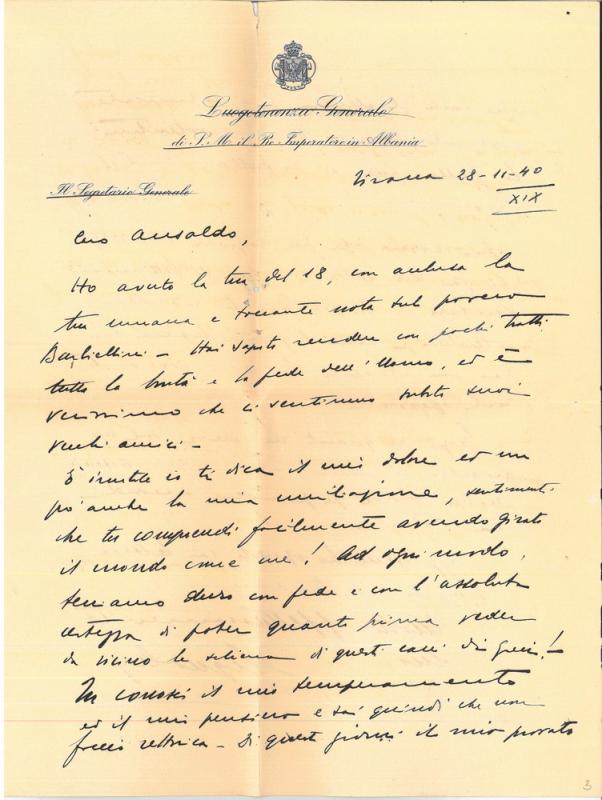 Luogotenenza Generale
di S. M. il Re Imperatore in Albania
Il Segretario Generale
Tirana 28-11-40
XIX
Caro Ansaldo,
Ho avuto la tua del 18, con acclusa la
tua umana e toccante nota sul povero
Hai saputo rendere con pochi tratti
tutta la bontà e la fede dell'Uomo, ed è
verissimo che ci sentimmo subito suoi
vecchi amici -
È inutile io ti dica il mio dolore ed un
po' anche la mia umiliazione, sentimenti
che tu comprendi facilmente avendo girato
il mondo come me! Ad ogni modo,
teniamo duro con fede e con l'assoluta
certezza di poter quanto prima veder
da vicino la schiena di questi cari greci!-
Tu conosci il mio temperamento
ed il mio pensiero e sai quindi che non
faccio rettorica - Di questi giorni il mio provato
3